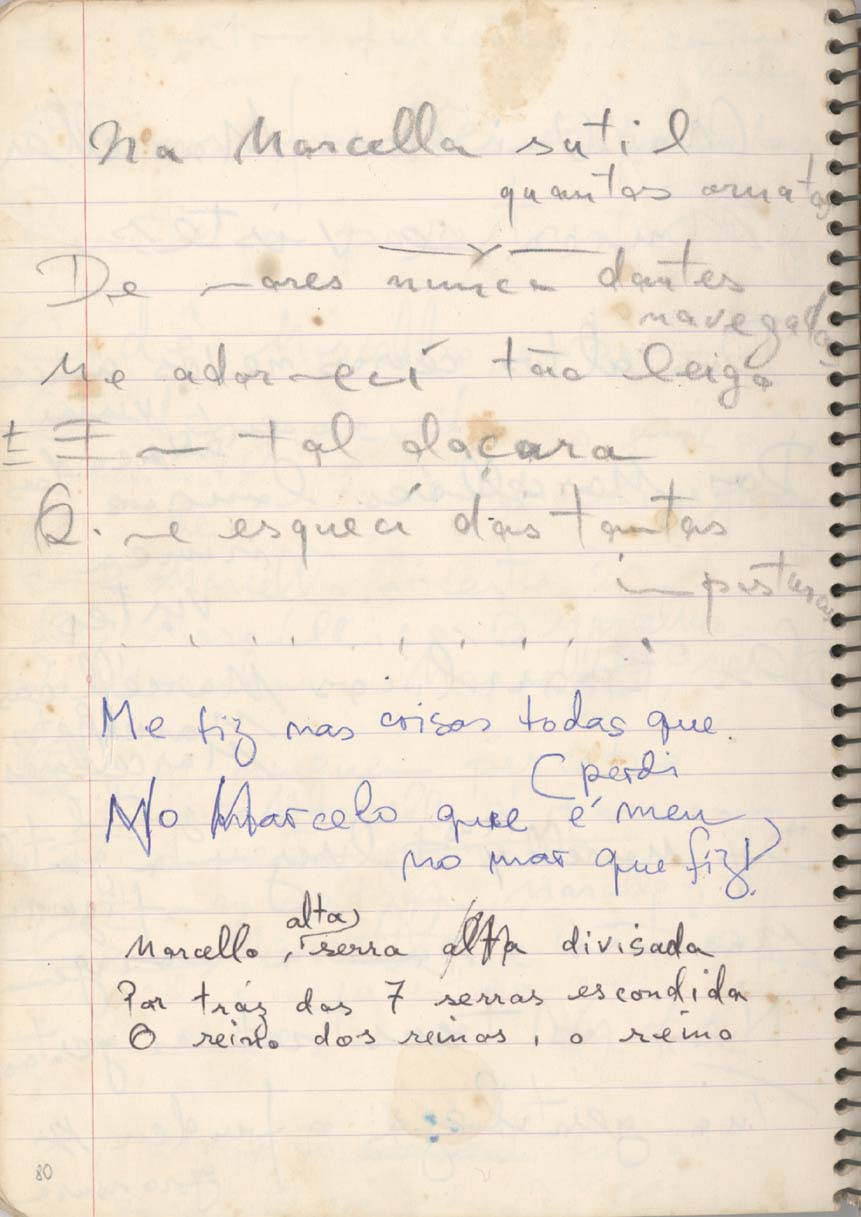 Na Marcella sutil
quantos ornatos
De mares nunca dantes
navegados
Me adormeci tão leigo
tal doçura
Q. me esqueci das tantas
imposturas
Me fiz nas coisas todas que
(perdi
No Marcelo que é meu
no mar que fiz!
alta
Marcello, serra alta divisada
Por tráz das 7 serras escondida
O reino dos reinos, o reino
80